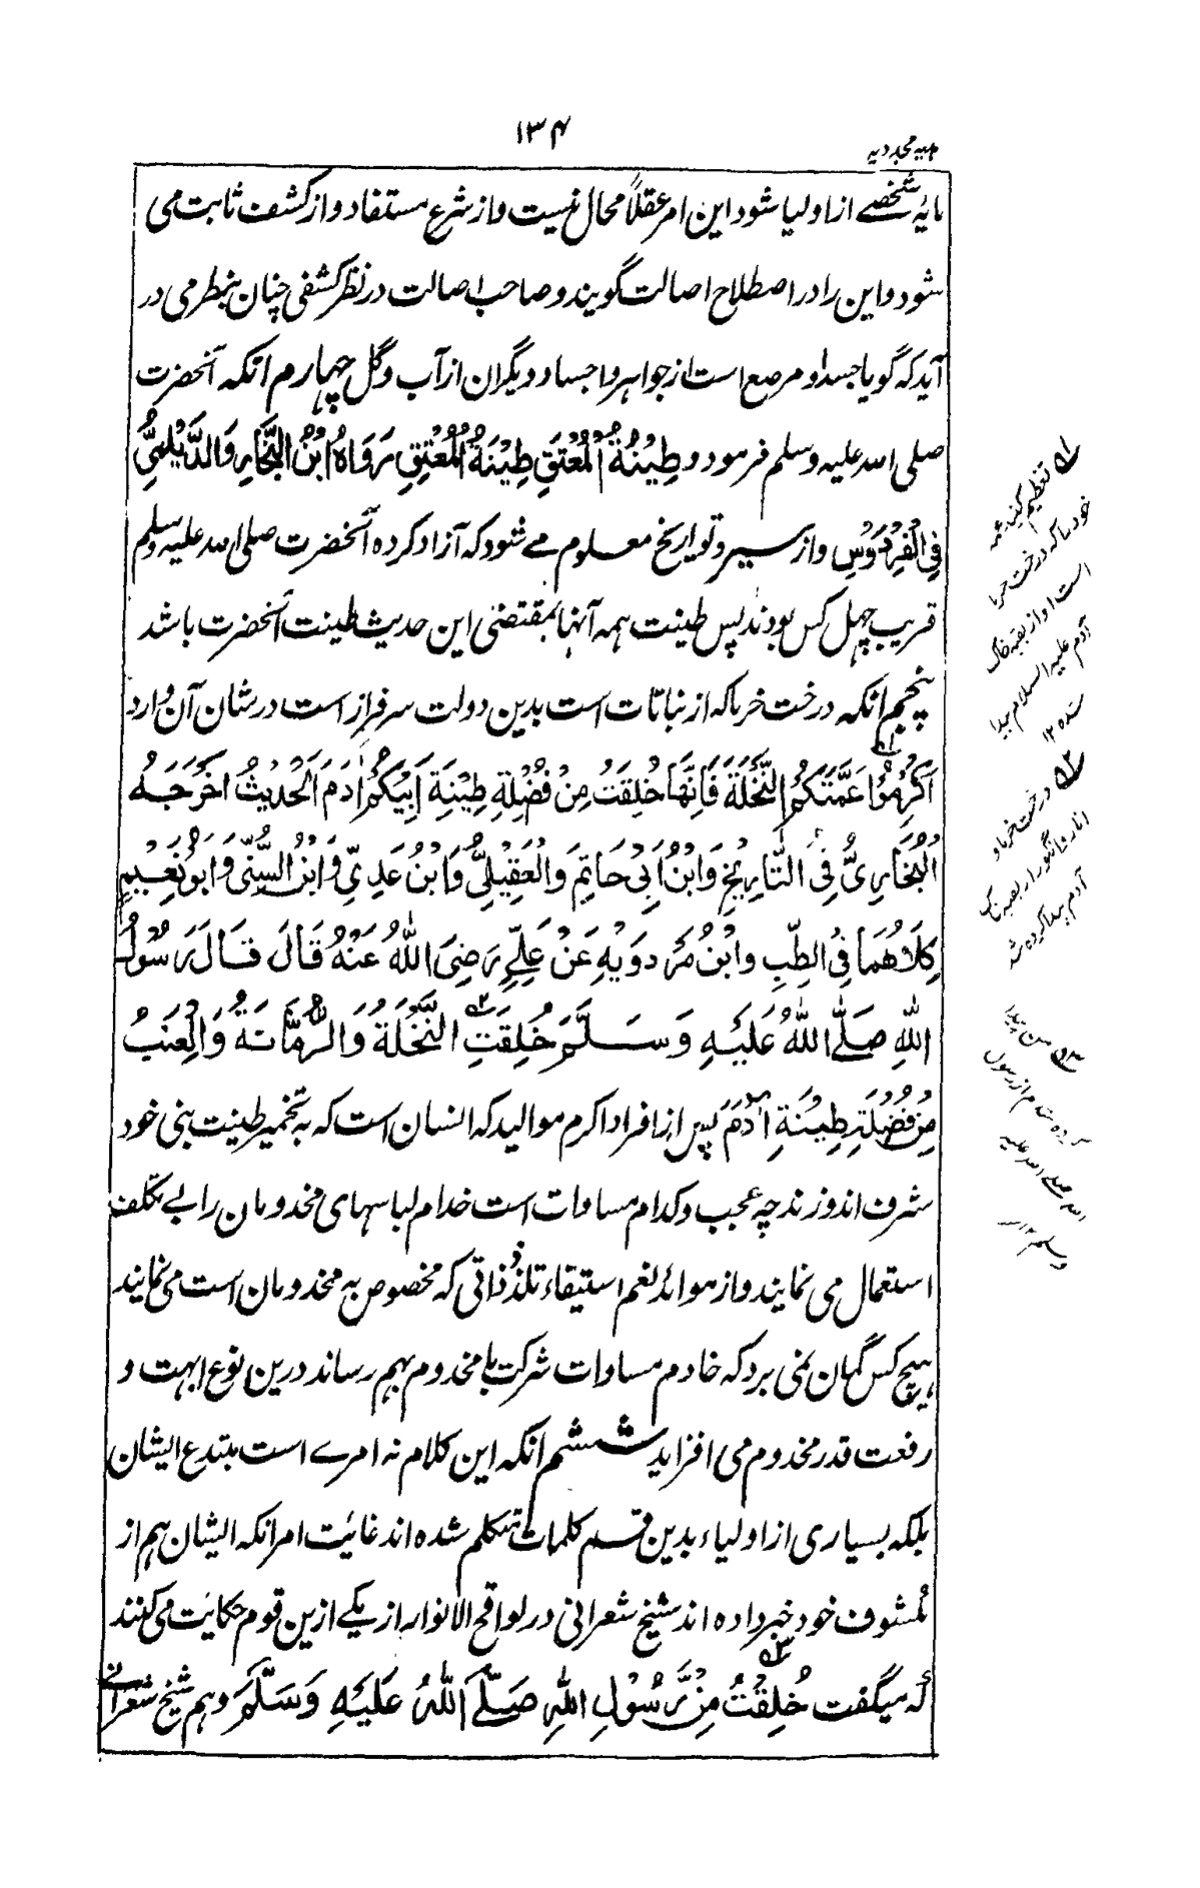 ۱۳۴
ہدیہ مجددیہ
مایۂ شخصے از اولیا شود این امر عقلاً محال نیست و از شرع مستفاد و از کشف ثابت می
شود و این را در اصطلاح اصالت گویند و صاحب اصالت در نظر کشفی چنان بنظر می در
آید که گویا جسد او مرصع است از جواهر و اجساد دیگران از آب و گل چهارم آنکه آنحضرت
صلی الله علیه وسلم فرمودد طِیْنَةُ الْمُعْتَقِ طِیْنَةُ الْمُعْتِقِ رَوَاهُ ابْنُ النَّجَّارِ وَالدَّیْلَمِیُّ
فِی الْفِرْدَوْسِ و از سیر و تواریخ معلوم مے شود که آزاد کرده آنحضرت صلی الله علیه وسلم
قریب چهل کس بودند پس طینت همه آنها بمقتضی این حدیث طینت آنحضرت باشد
پنجم آنکه درخت خرما که از نباتات است بدین دولت سرفراز است در شان آن وارد
اَکْرِمُوْا عَمَّتَکُمُ النَّخْلَةَ فَاِنَّهَا خُلِقَتْ مِنْ فُضْلَةِ طِیْنَةِ اَبِیْکُمْ اٰدَمَ اَلْحَدِیْثَ اَخْرَجَهُ
الْبُخَارِیُّ فِی التَّارِیْخِ وَابْنُ اَبِیْ حَاتِمَ وَالْعَقِیْلِیُّ وَابْنُ عَدِیٍّ وَابْنُ السُّنِّی وَاَبُوْ نُعِیْمٍ
کِلَاهُمَا فِی الطِّبِ وَابْنُ مَرْدَوَیْهِ عَنْ عَلِیٍّ رَضِیَ اللهُ عَنْهُ قَالَ قَالَ رَسُوْلُ
اللهِ صَلَّی اللهُ عَلَیْهِ وَسَلَّمَ خُلِقَتِ النَّخْلَةُ وَالرُّمَّانَةُ وَالْعِنَبُ
مِنْ فُضْلَةِ طِیْنَةِ اٰدَمَ پس از افراد اکرم موالید که انسان است که به تخمیر طینت بنی خود
شرف اندوزند چه عجب و کدام مساوات است خدام لباسهای مخدومان را بے تکلف
استعمال می نمایند و از موائد نعم استیفاء تلذذاتی که مخصوص به مخدومان است می نمایند
هیچ کس گمان نمی برد که خادم مساوات شرکت با مخدوم بهم رساند درین نوع ابهت و
رفعت قدر مخدوم می افزاید ششم آنکه این کلام نه امرے است مبتدع ایشان
بلکه بسیاری از اولیاء بدین قسم کلمات متکلم شده اند غایت امر آنکه ایشان هم از
کشوف خود خبر داده اند شیخ شعرانی در لواقح الانوار از یکے ازین قوم حکایت می کنند
که میگفت خُلِقْتُ مِنْ رَّسُوْلِ اللهِ صَلَّی اللهُ عَلَیْهِ وَسَلَّمَ وهم شیخ شعرانی
۱ تعظیم کنید عمه
خود را که درخت خرما
است او از بقیه خاک
آدم علیه السلام پیدا
شده ۱۲
۲ درخت خرما و
انار و انگور از بقیه خاک
آدم پیدا کرده شد
۳ من پیدا
کرده شدم از رسول
الله صلے الله علیه
وسلم ۱۲